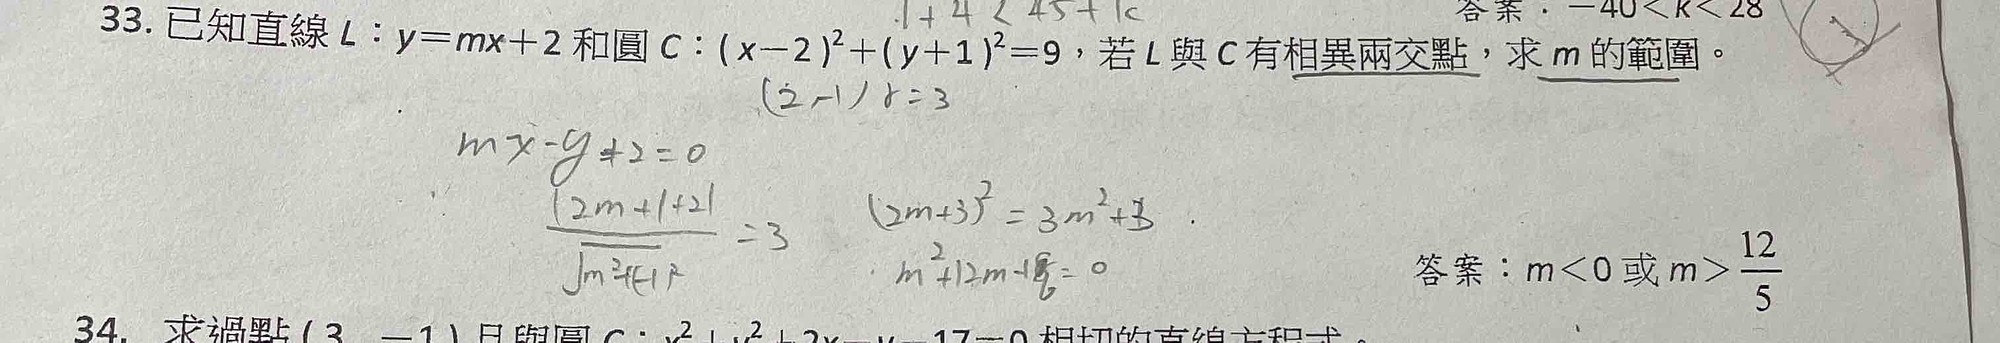 1+4<45+k
答案：－40＜k＜28
33. 已知直線 L：y＝mx＋2 和圓 C：(x－2)²＋(y＋1)²＝9，若 L 與 C 有相異兩交點，求 m 的範圍。
(2,-1) r=3
mx-y+2=0
|2m+1+2| / √m²+(-1)² =3
(2m+3)² = 3m²+3
m²+12m+6=0
答案：m＜0 或 m＞12/5
34. 求過點 (3，－1) 且與圓 C：x²＋y²＋2x－y－17＝0 相切的直線方程式。